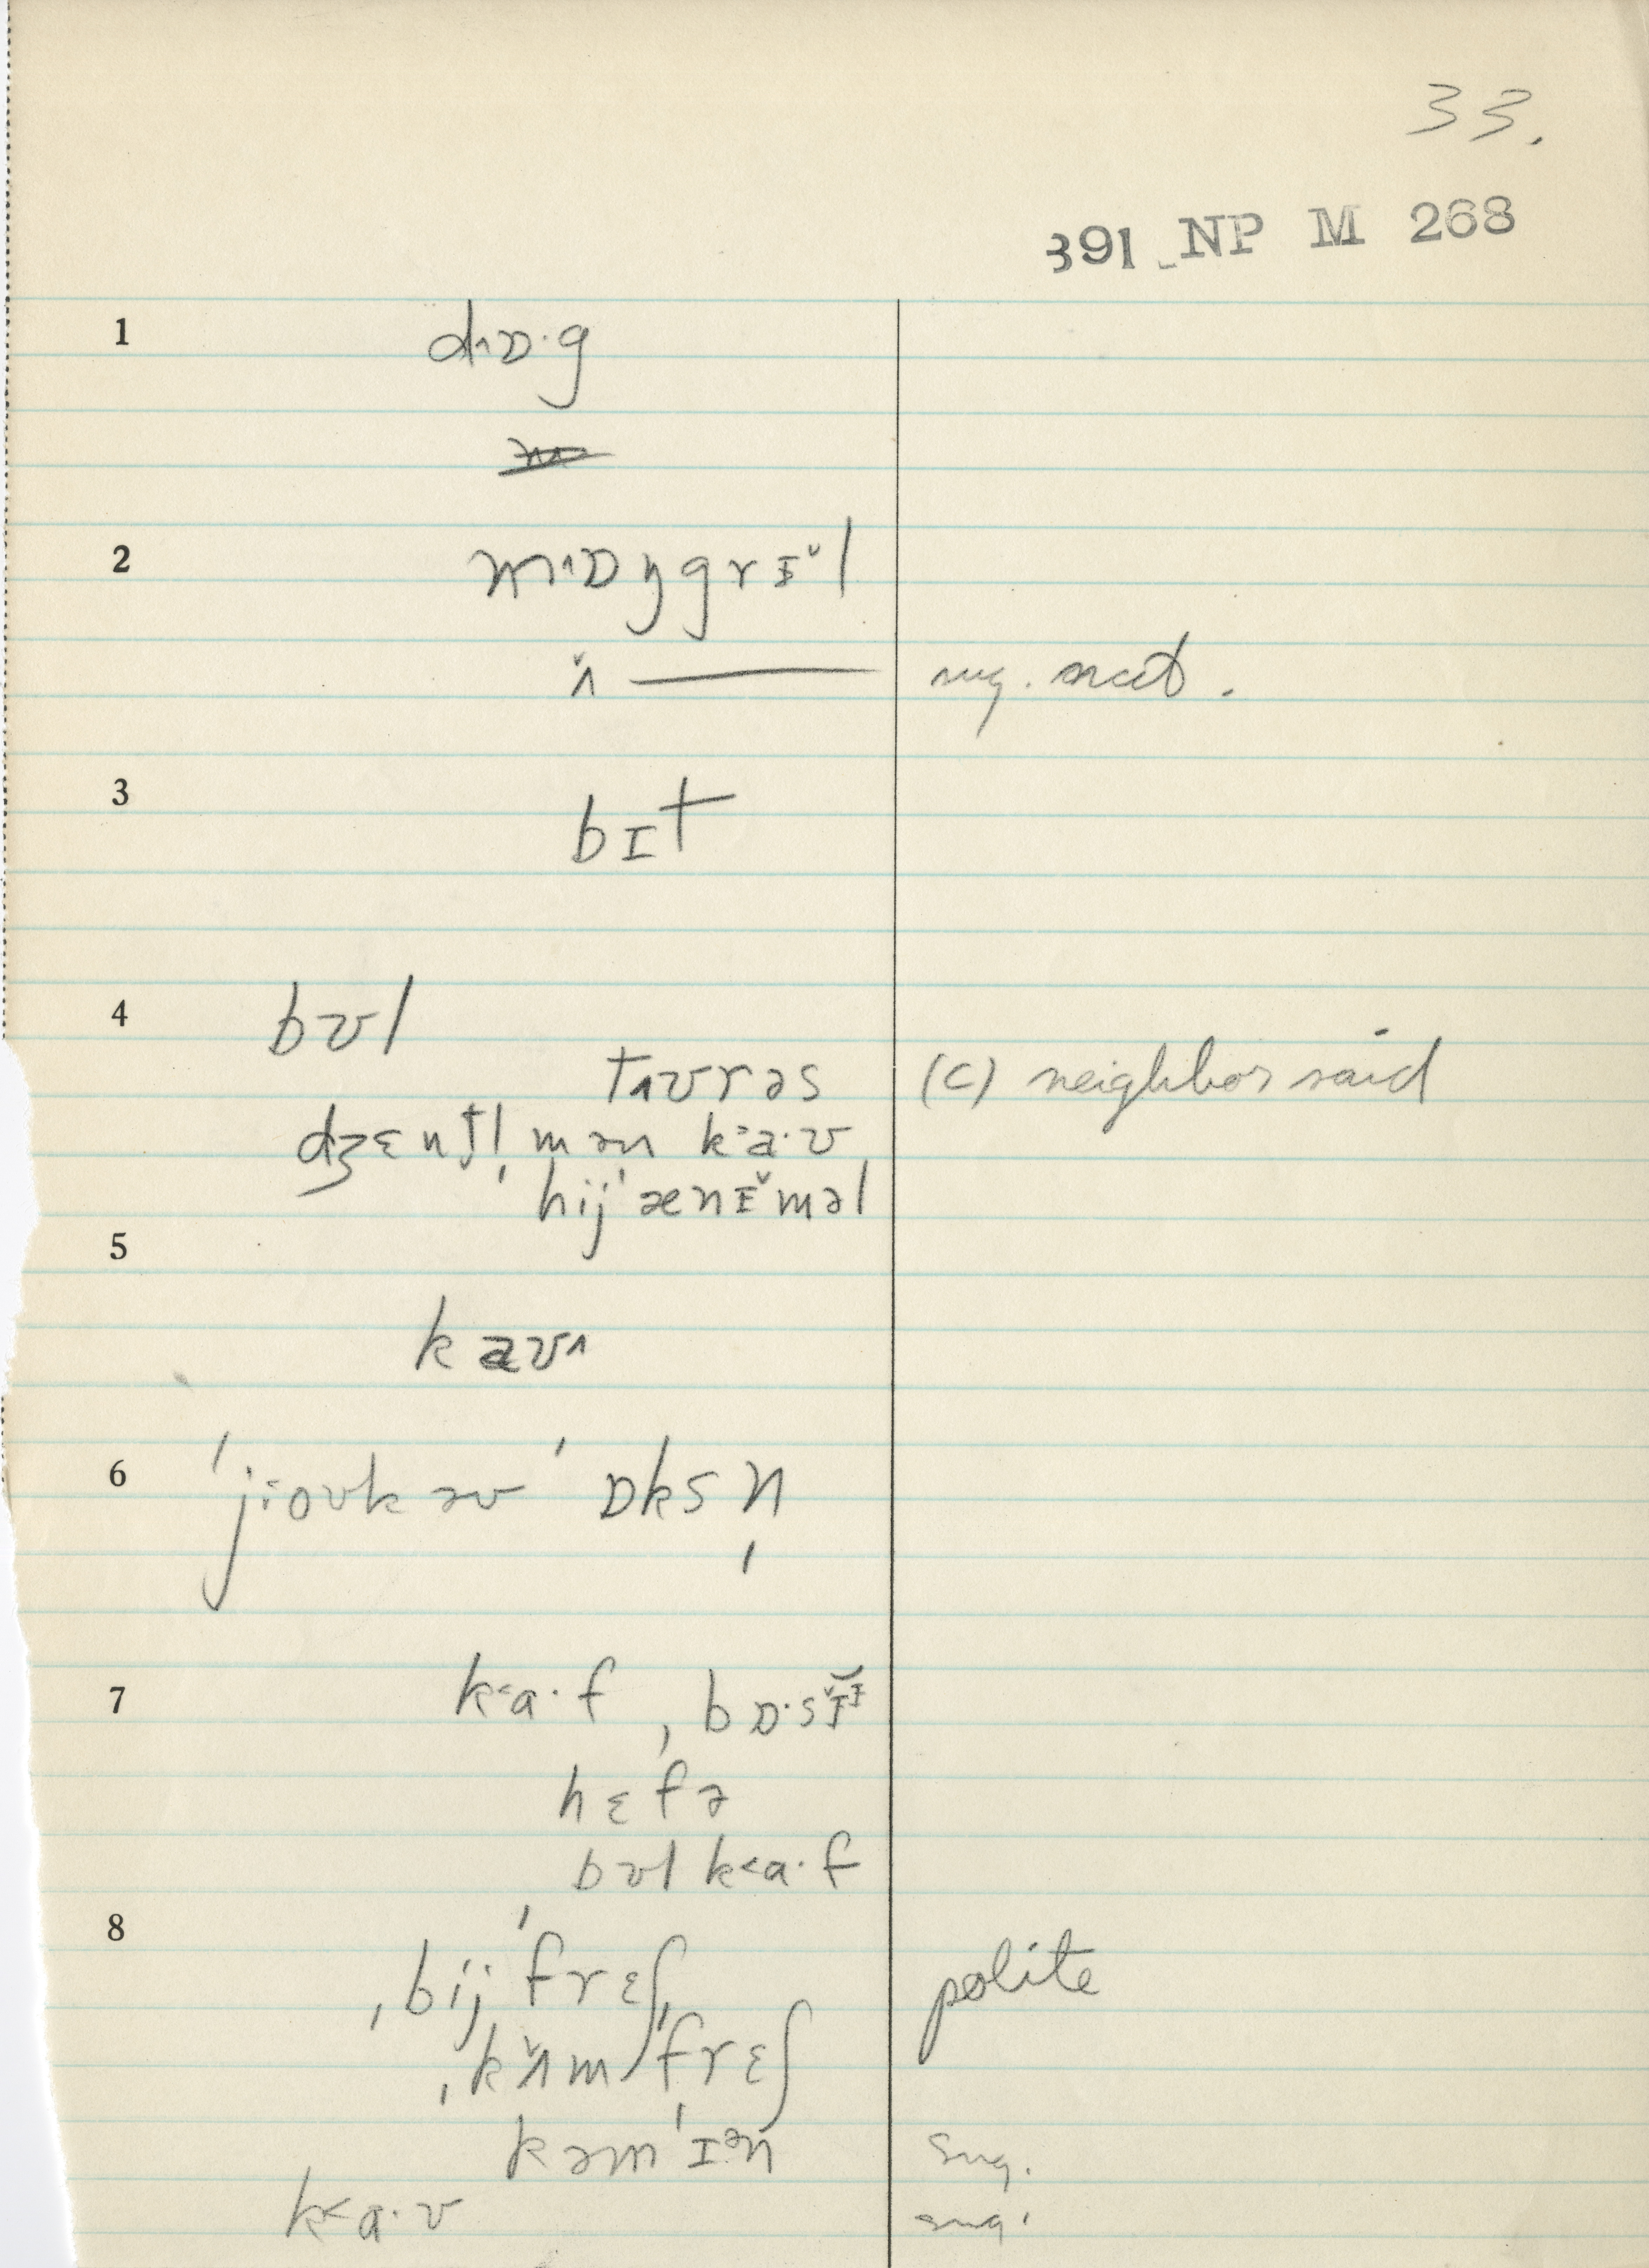 33.
391 NP M 268
1 d˄ɒ·g
2 m˄ɒŋgrɪ̌l
ʌ̌ —— sug. nat.
3 bɪt
4 bʊl
t˄ʊrəs (c) neighbor said
dʒɛntl̩mən k>a·ʊ
hij'ænɪ̌məl
5
kaʊ˄
6 'ji·oʊkaʊ 'ɒksn̩
7 k<a·f, bɒ·sɪ̌ɪ
hɛfə
bʊl k<a·f
8 ˌbij'frɛʃ, polite
ˌkʌ̌m'frɛʃ
kəm'ɪᵊn sug.
k<a·ʊ sug.